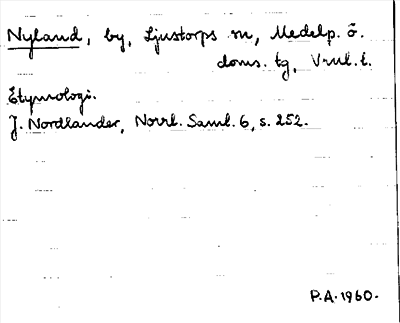 Nyland, by, Ljustorps sn, Medelp. ö.
doms. tg, Vnrl. t.
Etymologi.
J. Nordlander, Norrl. Saml. 6, s. 252.
P.A. 1960.